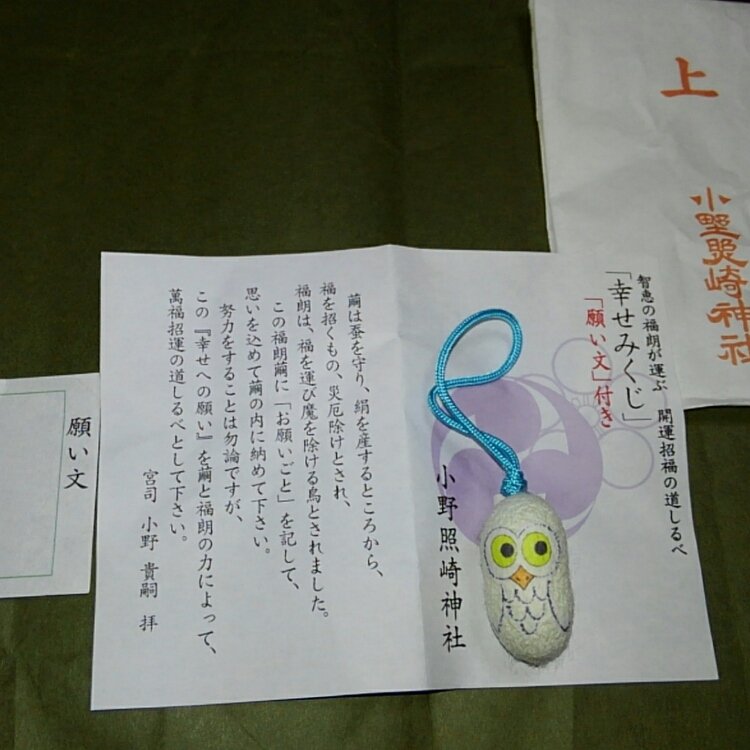 上
小野照崎神社
智恵の福朗が運ぶ　開運招福の道しるべ
「幸せみくじ」
「願い文」付き
小野照崎神社
繭は蚕を守り、絹を産するところから、
福を招くもの、災厄除けとされ、
福朗は、福を運び魔を除ける鳥とされました。
この福朗繭に「お願いごと」を記して、
思いを込めて繭の内に納めて下さい。
努力をすることは勿論ですが、
この『幸せへの願い』を繭と福朗の力によって、
萬福招運の道しるべとして下さい。
宮司　小野　貴嗣　拝
願い文